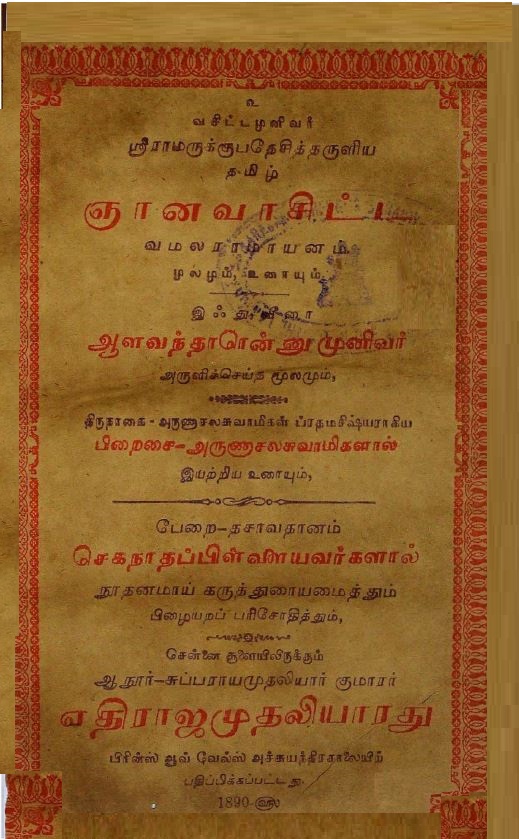 உ
வசிட்டமுனிவர்
ஸ்ரீராமருக்கூபதேசித்தருளிய
தமிழ்
ஞானவாசிட்ட
வமலராமாயனம்
மூலமும், உரையும்
இஃது, வீரை
ஆளவந்தாரென்னுமுனிவர்
அருளிச்செய்த மூலமும்,
திருநாகை-அருணாசலசுவாமிகள் ப்ரதமசிஷ்யராகிய
பிறைசை-அருணாசலசுவாமிகளால்
இயற்றிய உரையும்,
பேறை-தசாவதானம்
செகநாதப்பிள்ளையவர்களால்
நூதனமாய் கருத்துரையமைத்தும்
பிழையறப் பரிசோதித்தும்,
சென்னை சூளையிலிருக்கும்
ஆநூர்-சுப்பராயமுதலியார் குமாரர்
எதிராஜமுதலியாரது
பிரின்ஸ் ஆவ் வேல்ஸ் அச்சுயந்திரசாலையிற்
பதிப்பிக்கப்பட்டது.
1890-௵